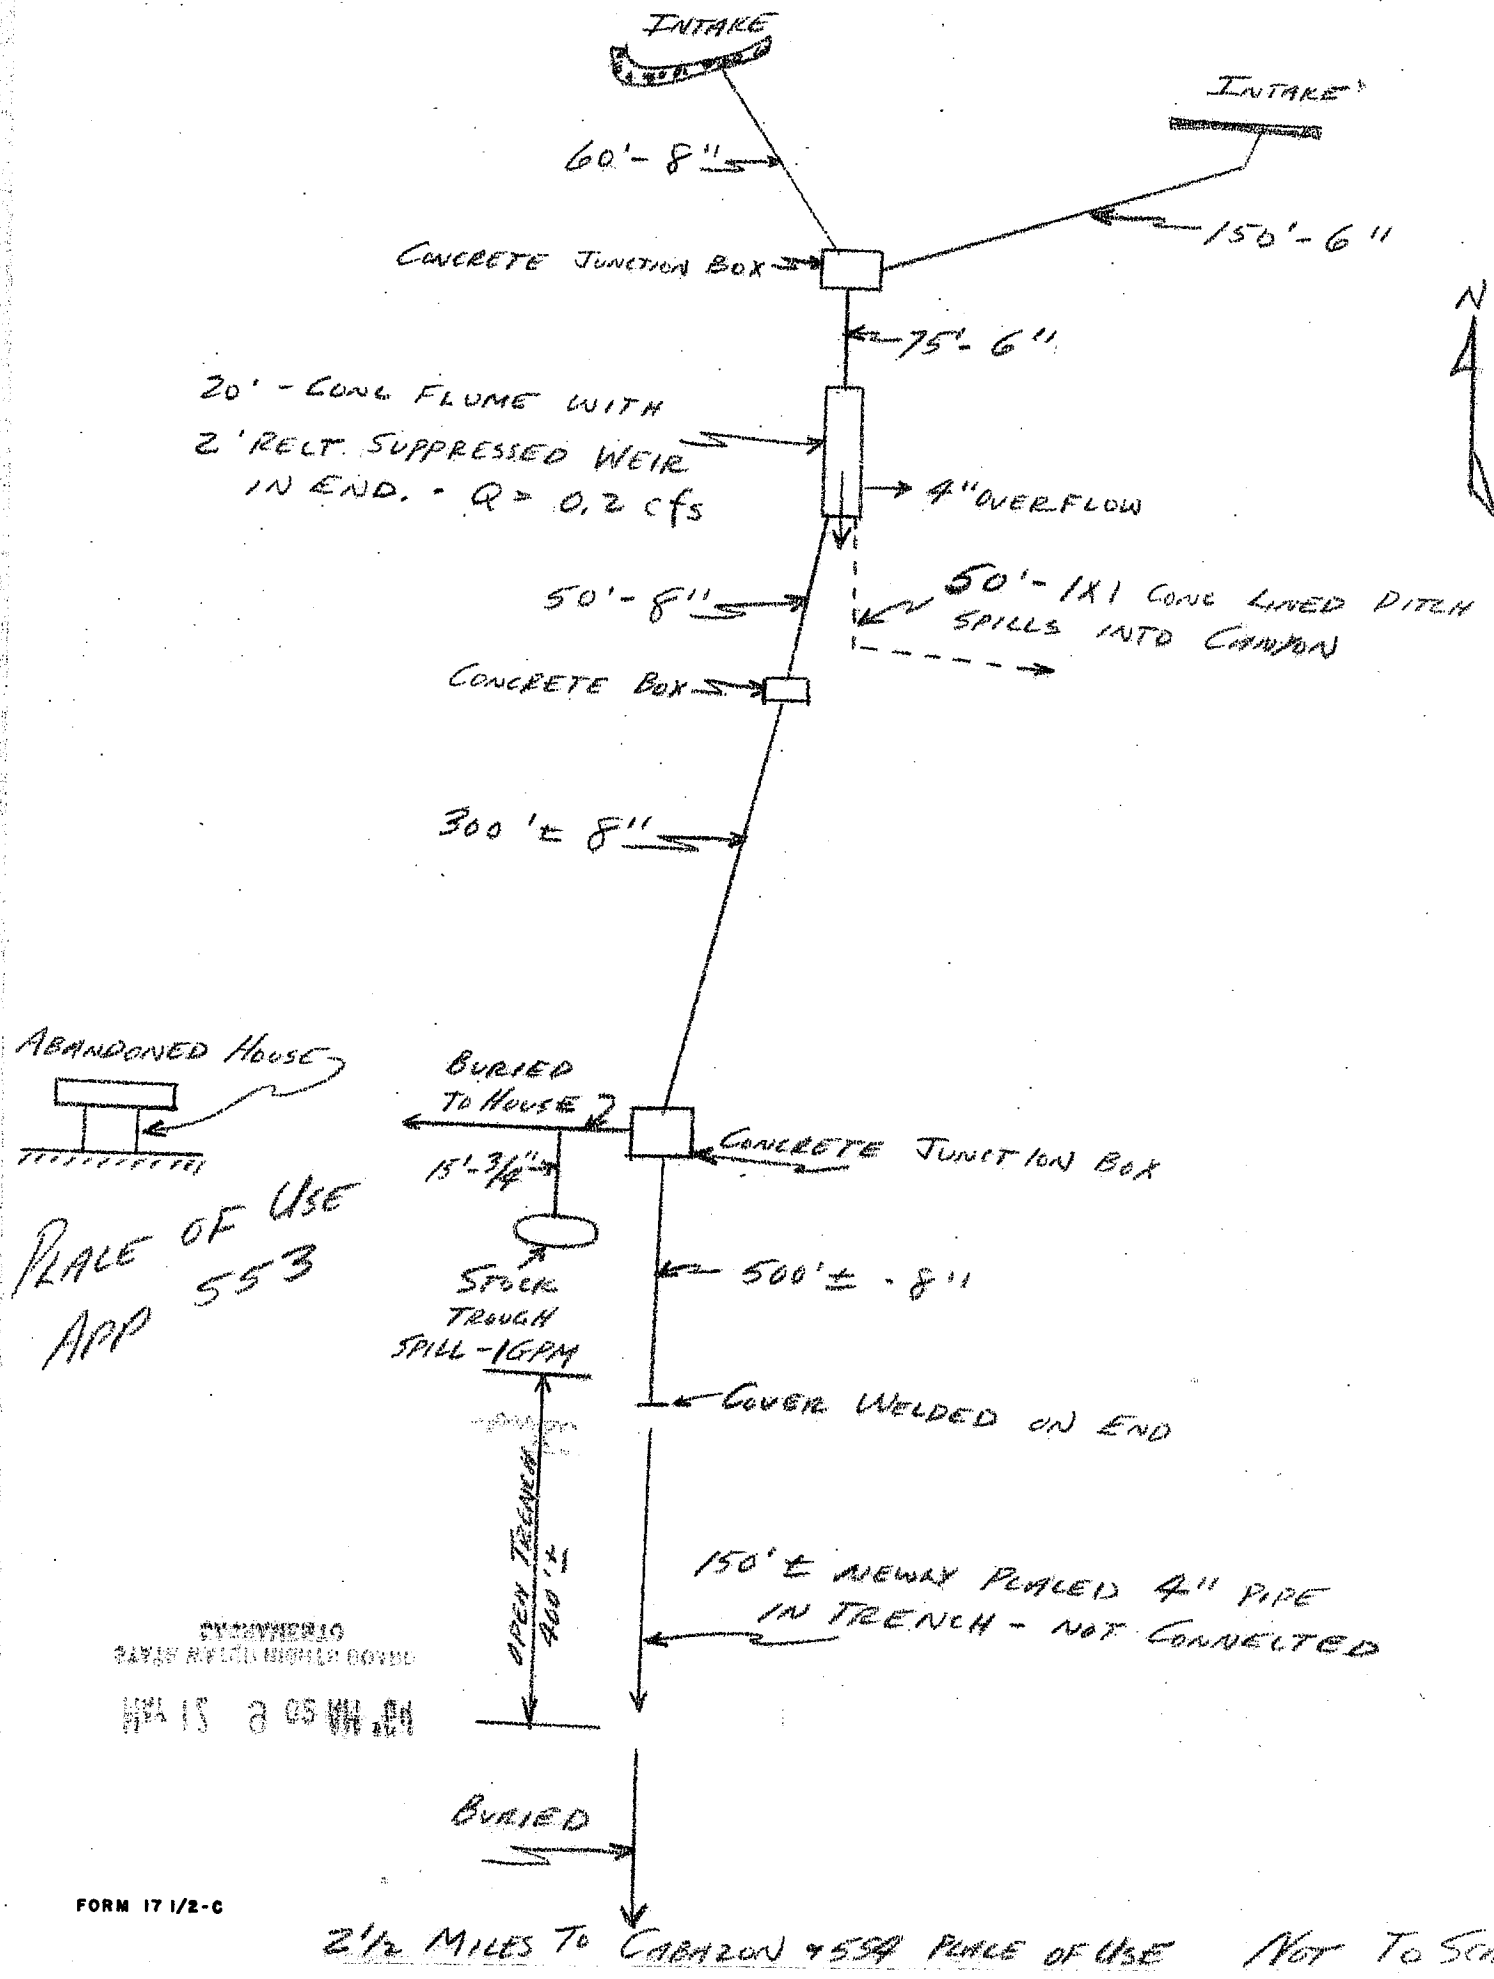 INTAKE
INTAKE
60'- 8"
150'- 6"
CONCRETE JUNCTION BOX
N
75'- 6"
20' - CONC FLUME WITH
2' RECT. SUPPRESSED WEIR
IN END. - Q = 0.2 cfs
4" OVERFLOW
50'- 8"
50'- 1X1 CONC LINED DITCH
SPILLS INTO CANYON
CONCRETE BOX
300'± 8"
ABANDONED HOUSE
BURIED
TO HOUSE
CONCRETE JUNCTION BOX
15'-3/4"
PLACE OF USE
APP 553
STOCK
TROUGH
SPILL - 1 GPM
500'± - 8"
COVER WELDED ON END
OPEN TRENCH
400'±
150'± NEWLY PLACED 4" PIPE
IN TRENCH - NOT CONNECTED
SACRAMENTO
STATE WATER RIGHTS BOARD
9 05 AM
BURIED
FORM 17 1/2-C
2 1/2 MILES TO CABAZON & 554 PLACE OF USE
NOT TO SCA